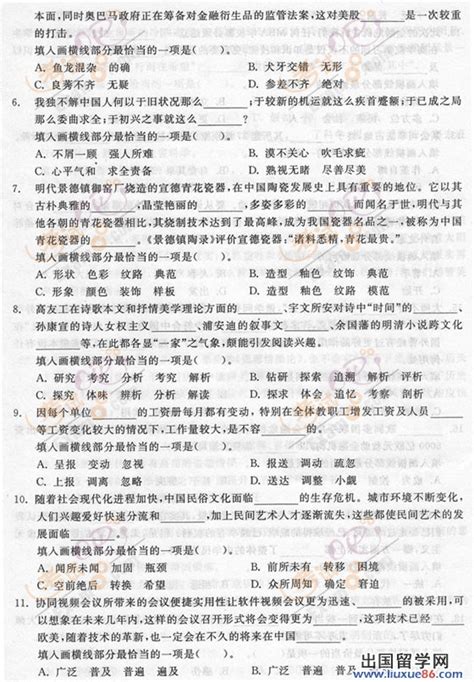 本面,同时奥巴马政府正在筹备对金融衍生品的监管法案,这对美股______是一次较重
的打击。
填入画横线部分最恰当的一项是( )。
A. 鱼龙混杂 的确
B. 犬牙交错 无形
C. 良莠不齐 无疑
D. 参差不齐 绝对
6. 我独不解中国人何以于旧状况那么______,于较新的机运就这么疾首蹙额;于已成之局
那么委曲求全;于初兴之事就这么______?
填入画横线部分最恰当的一项是( )。
A. 不屑一顾 强人所难
B. 漠不关心 吹毛求疵
C. 心平气和 求全责备
D. 熟视无睹 尽善尽美
7. 明代景德镇御窑厂烧造的宣德青花瓷器,在中国陶瓷发展史上具有重要的地位。它以其
古朴典雅的______,晶莹艳丽的______,多姿多彩的______而闻名于世,明代与其
他各朝的青花瓷器相比,其烧制技术达到了最高峰,成为我国瓷器名品之一,被称为中国
青花瓷器的______。《景德镇陶录》评价宣德瓷器:“诸料悉精,青花最贵。”
填入画横线部分最恰当的一项是( )。
A. 形状 色彩 纹路 典范
B. 造型 釉色 纹饰 典范
C. 形象 颜色 装饰 样板
D. 造型 釉色 纹路 模范
8. 高友工在诗歌本文和抒情美学理论方面的______、宇文所安对诗中“时间”的______、
孙康宣的诗人女权主义______、浦安迪的叙事文______、余国藩的明清小说跨文化
______等,在此都各显“一家”之气象,颇能引发阅读兴趣。
填入画横线部分最恰当的一项是( )。
A. 研究 考究 分析 考量 解析
B. 钻研 探索 追溯 解析 评析
C. 探究 体味 辨析 分析 解读
D. 探求 体会 追估 考察 剖析
9. 因每个单位______的工资册每月都有变动,特别在全体教职工增发工资及人员______
等工资变化较大的情况下,工作量较大,是不容______的。
填入画横线部分最恰当的一项是( )。
A. 呈报 变动 忽视
B. 报送 调动 疏忽
C. 上报 调离 忽略
D. 送达 调整 小觑
10. 随着社会现代化进程加快,中国民俗文化面临______的生存危机。城市环境不断变化,
人们兴趣爱好快速分流和______,加上民间艺术人才逐渐流失,这些都使民间艺术的发
展面临______。
填入画横线部分最恰当的一项是( )。
A. 闻所未闻 加固 瓶颈
B. 前所未有 转移 困境
C. 空前绝后 转换 希望
D. 众所周知 确定 青道
11. 协同视频会议所带来的会议便捷实用性让软件视频会议更为迅速、______的被采用,可
以想象在未来几年内,这样的会议召开形式将会变得更为______,这项技术已经______
欧美,随着技术的革新,也一定会在不久的将来在中国______。
填入画横线部分最恰当的一项是( )。
A. 广泛 普及 普遍 遍及
B. 广泛 普遍 遍及 普及
出国留学网
www.liuxue86.com